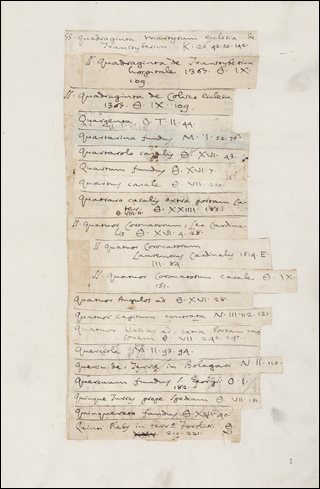 SS. Quadraginta Martyrum ecclesia de
Transtyberim K. 26. 42. 50. 142.
SS. Quadraginta de Transtyberim
hospitale 1367. Θ. IX.
109.
SS. Quadraginta de Colosseo ecclesia
1367. Θ. IX. 109.
Quargenta O. T. II. 44.
Quartarina fundus M. I. 52.
Quartarolo casalis Θ. XVI. 43.
Quartum fundus Θ. XVI. 7.
Quartus casale Θ. VII.
Quatraro casalis extra portam La-
ter. Θ. XXIIII. 183.
Θ. VIII.
SS. Quatuor Coronatorum, Leo Cardina-
lis Θ. XVI. 4. 28.
SS. Quatuor Coronatorum
Laurentius Cardinalis 1514. E.
III. 84.
SS. Quatuor Coronatorum casale Θ. IX.
151.
Quatuor Angulos ad Θ. XVI. 28.
Quatuor capitum contrata N. III. 112. 121.
Quatuor ad. extra Portam
Θ. VII. 242. 247.
Querciola M. II. 93. 94.
Quercu de: Terra in Bolagai N. II. 110.
Quercuum fundus S. Georgii O. I.
182.
Quinque Turres prope Θ. VII. 151.
Quinquereto fundus Θ. XVI. 40.
in terr. Θ.
219. 221.
1